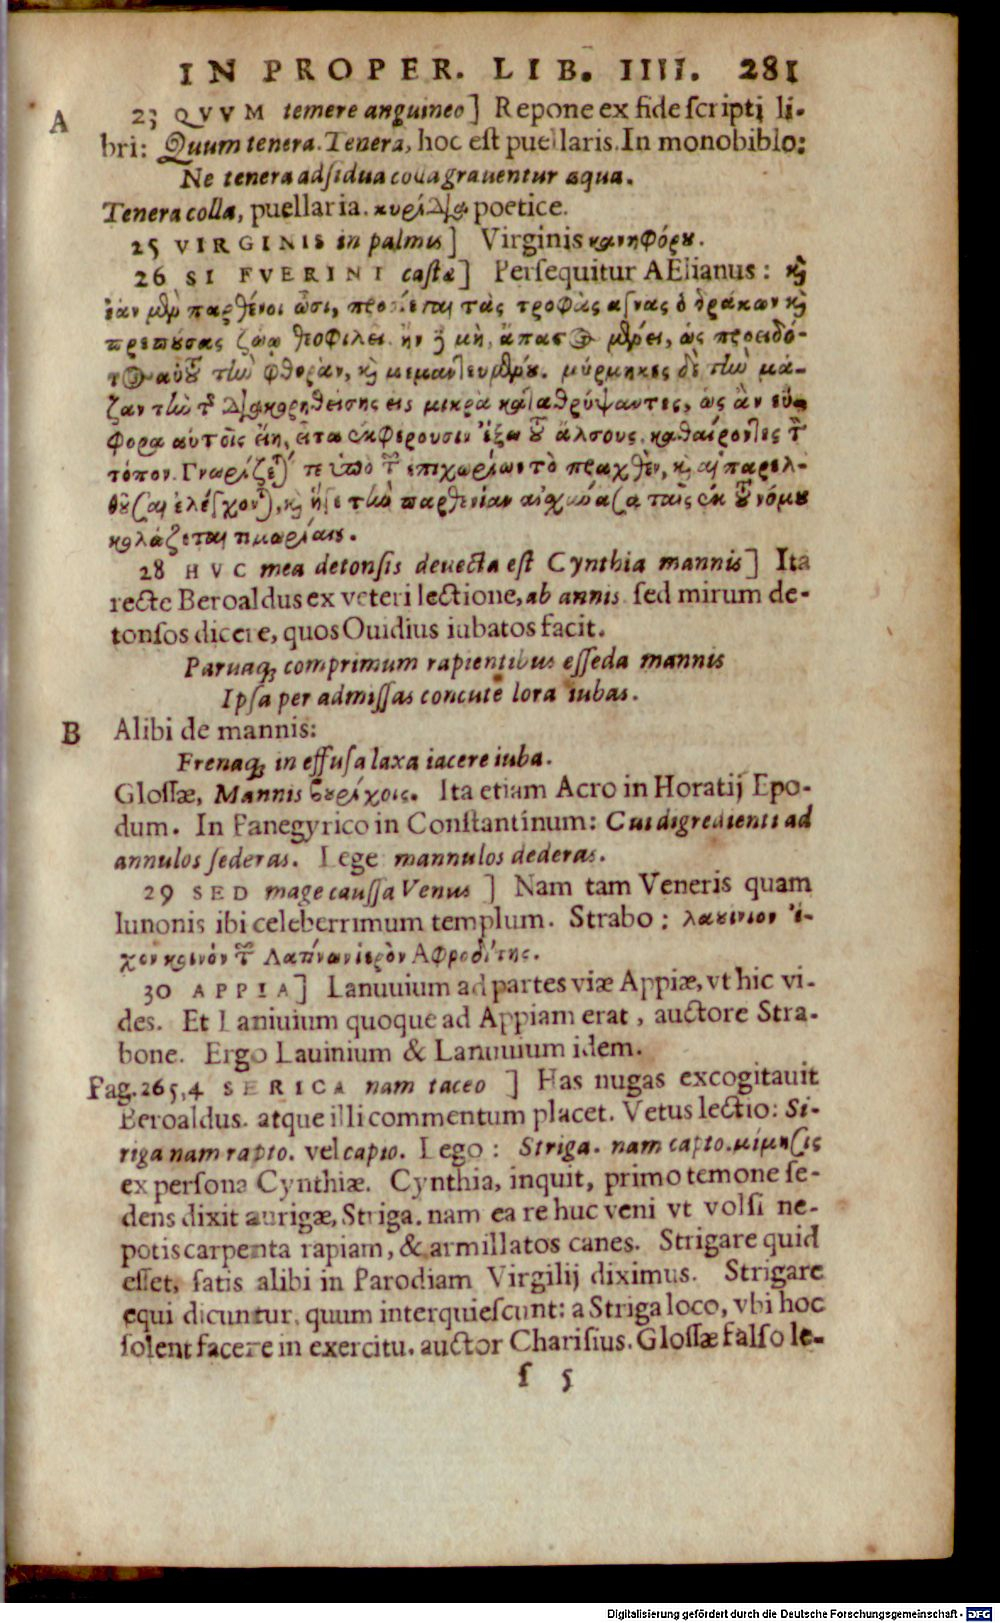 IN PROPER. LIB. IIII. 281
A 23 QVVM temere anguineo] Repone ex fide scripti li-
bri: Quum tenera. Tenera, hoc est puellaris. In monobiblo:
Ne tenera adsidua colla grauentur aqua.
Tenera colla, puellaria. κυρίως poetice.
25 VIRGINIS in palmis] Virginis κανηφόρου.
26 SI FVERINT castæ] Persequitur AElianus: καὶ
ἐὰν μὲν παρθένοι ὦσι, προσίεται τὰς τροφὰς ἁγνὰς ὁ δράκων καὶ
πρεπούσας ζώῳ θεοφιλεῖ. ἢν δὲ μὴ, ἄπαστος μένει, ὡς προειδό-
τος αὐτοῦ τὴν φθορὰν, καὶ μεμαντευμένου. μύρμηκες δὲ τὴν μά-
ζαν τὴν τῆς διακορηθείσης εἰς μικρὰ καταθρύψαντες, ὡς ἂν εὔ-
φορα αὐτοῖς εἴη, εἶτα ἐκφέρουσιν ἔξω τοῦ ἄλσους, καθαίροντες τὸν
τόπον. Γνωρίζεται τε ὑπὸ τῶν ἐπιχωρίων τὸ πραχθὲν, καὶ αἱ παρελ-
θοῦσαι ἐλέγχονται, καὶ ἥγε τὴν παρθενίαν αἰσχύνασα ταῖς ἐκ τοῦ νόμου
κολάζεται τιμωρίαις.
28 HVC mea detonsis deuecta est Cynthia mannis] Ita
recte Beroaldus ex veteri lectione, ab annis. sed mirum de-
tonsos dicere, quos Ouidius iubatos facit.
Paruaq; comprimum rapientibus esseda mannis
Ipsa per admissas concute lora iubas.
B Alibi de mannis:
Frenaq; in effusa laxa iacere iuba.
Glossæ, Mannis βουρίχοις. Ita etiam Acro in Horatij Epo-
dum. In Panegyrico in Constantinum: Cui digredienti ad
annulos sederas. Lege mannulos dederas.
29 SED mage caussa Venus ] Nam tam Veneris quam
Iunonis ibi celeberrimum templum. Strabo: λαουίνιον ἔ-
χον κοινὸν τῶν Λατίνων ἱερὸν Αφροδίτης.
30 APPIA] Lanuuium ad partes viæ Appiæ, vt hic vi-
des. Et Laniuium quoque ad Appiam erat, auctore Stra-
bone. Ergo Lauinium & Lanuuium idem.
Pag. 265,4 SERICA nam taceo ] Has nugas excogitauit
Beroaldus. atque illi commentum placet. Vetus lectio: Si-
riga nam rapto. vel capto. Lego: Striga. nam capto. μίμησις
ex persona Cynthiæ. Cynthia, inquit, primo temone se-
dens dixit aurigæ, Striga. nam ea re huc veni vt volsi ne-
potis carpenta rapiam, & armillatos canes. Strigare quid
esset, satis alibi in Parodiam Virgilij diximus. Strigare
equi dicuntur, quum interquiescunt: a Striga loco, vbi hoc
solent facere in exercitu. auctor Charisius. Glossæ falso le-
s 5
Digitalisierung gefördert durch die Deutsche Forschungsgemeinschaft - DFG